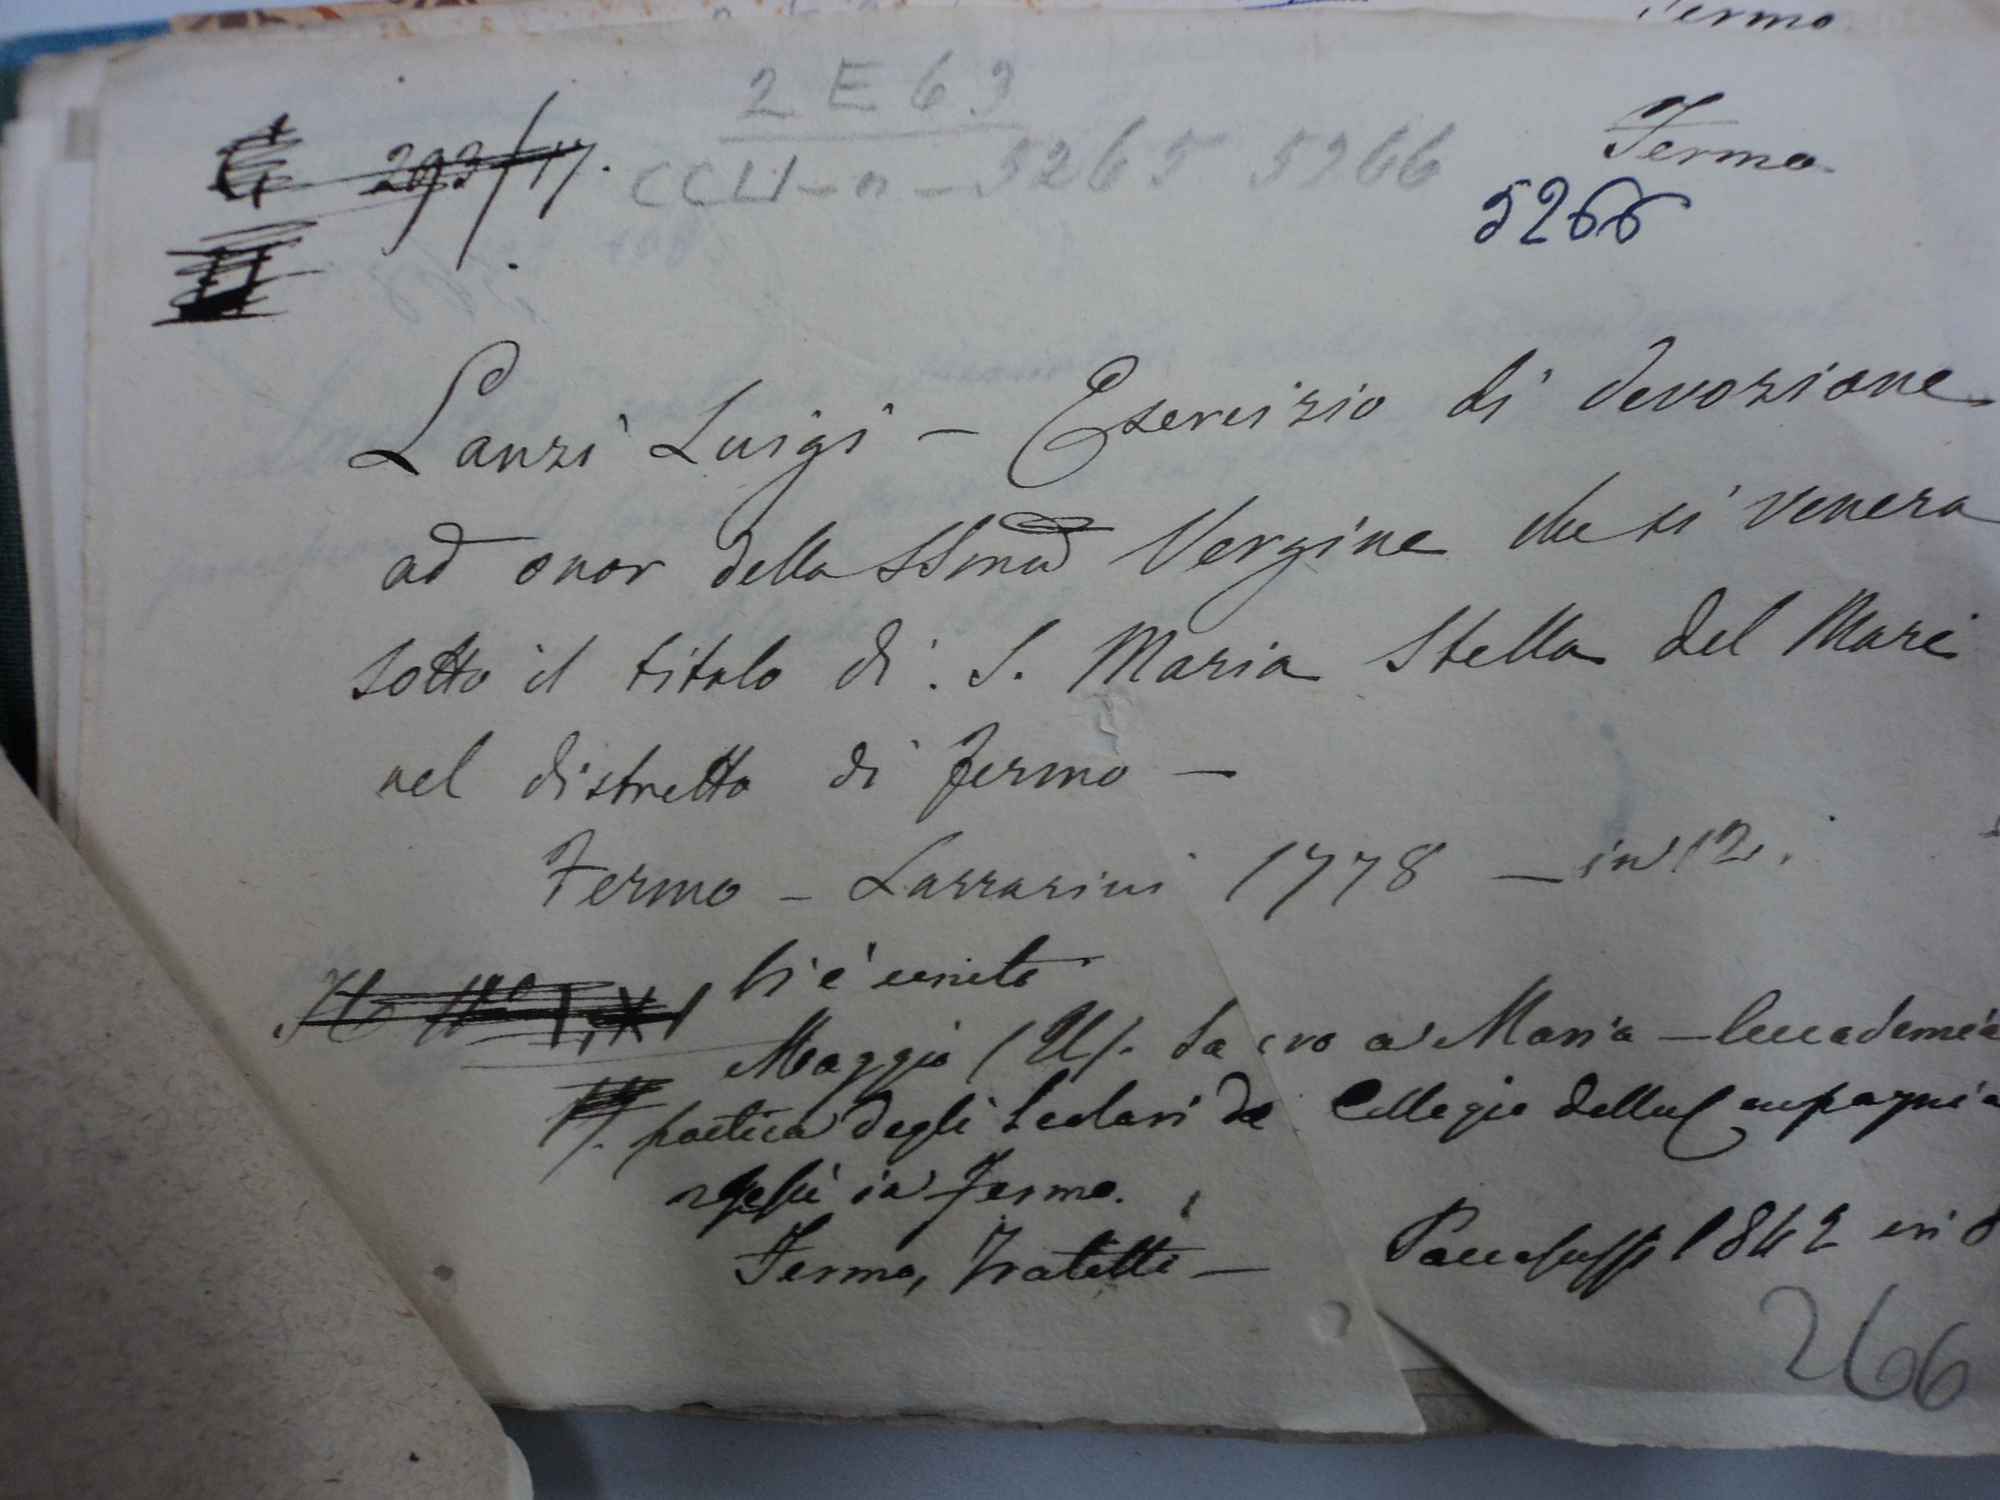 Fermo
2 E 63
293/17.
CCLI-n-5265 5266
Fermo.
5266
Lanzi Luigi - Esercizio di devozione
ad onor della SSma Vergine che si venera
sotto il titolo di S. Maria Stella del Mare
nel distretto di Fermo -
Fermo - Lazzarini 1778 - in 12.
Vi è unito
Maggio (Il). Sacro a Maria - Accademia
poetica degli Scolari del Collegio della Compagnia
in Fermo.
Fermo, Fratelli - Paccasassi 1842 in 8
266